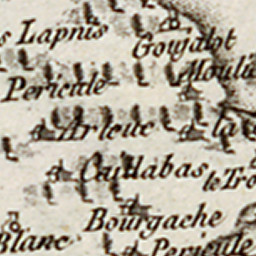 s Lapnis
Goujalot
Moulin
Pericule
Arleuc
la
Cuilabas
le Tro
Bourgache
Blanc
Pericule